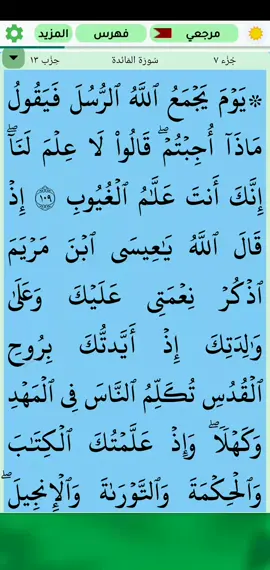 المزيد فهرس مرجعي
حِزب ١٣ سُورَة المَائدة جُزْء ٧
۞ يَوْمَ يَجْمَعُ اللَّهُ الرُّسُلَ فَيَقُولُ
مَاذَآ أُجِبْتُمْ ۖ قَالُوا۟ لَا عِلْمَ لَنَآ ۖ
إِنَّكَ أَنتَ عَلَّٰمُ الْغُيُوبِ ١٠٩ إِذْ
قَالَ اللَّهُ يَٰعِيسَى ابْنَ مَرْيَمَ
اذْكُرْ نِعْمَتِى عَلَيْكَ وَعَلَىٰ
وَٰلِدَتِكَ إِذْ أَيَّدتُّكَ بِرُوحِ
الْقُدُسِ تُكَلِّمُ النَّاسَ فِى الْمَهْدِ
وَكَهْلًا ۖ وَإِذْ عَلَّمْتُكَ الْكِتَٰبَ
وَالْحِكْمَةَ وَالتَّوْرَىٰةَ وَالْإِنجِيلَ ۖ